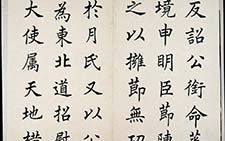 反詔公銜命
境申明臣節陳
之以擁節無
於月氏又以公
為東北道招慰
大使属天地横